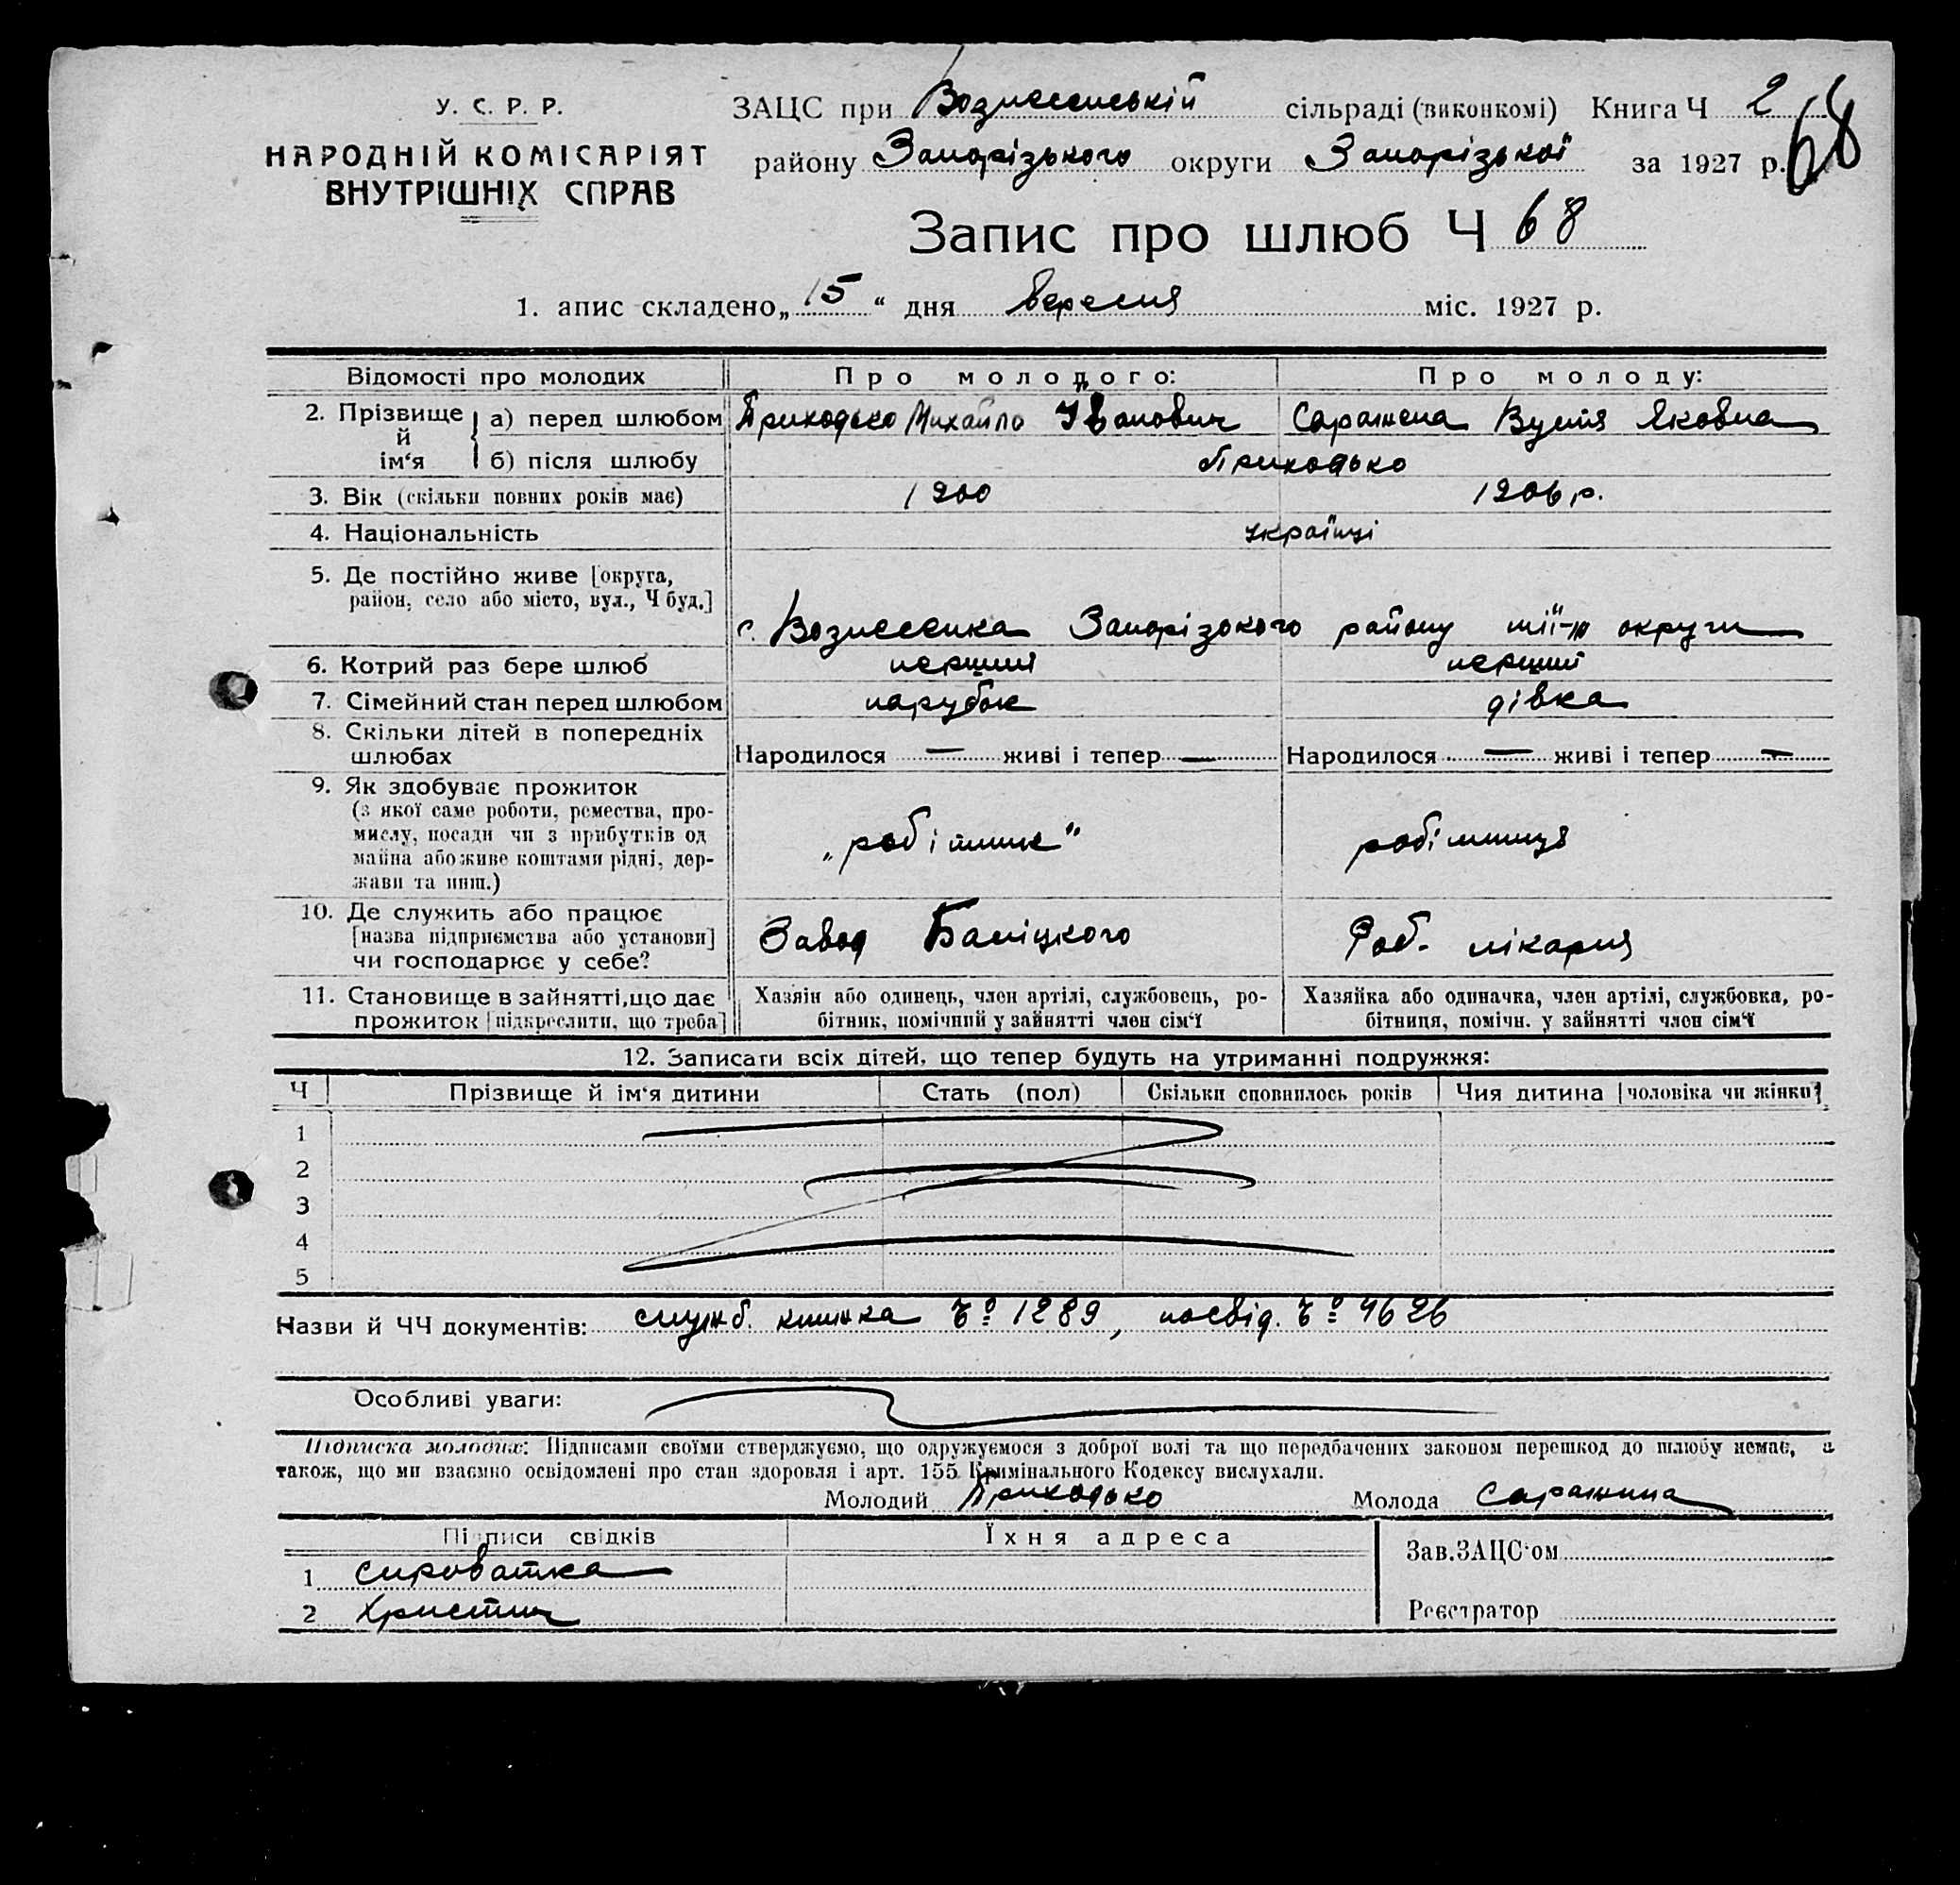 У. С. Р. Р.
НАРОДНІЙ КОМІСАРІЯТ
ВНУТРІШНІХ СПРАВ
ЗАЦС при Вознесенській сільраді (виконкомі) Книга Ч 2
68
району Запорізького округи Запорізької за 1927 р.
Запис про шлюб Ч 68
1. апис складено „ 15 “ дня вересня міс. 1927 р.
Відомості про молодих
Про молодого:
Про молоду:
2. Прізвище й ім‘я
а) перед шлюбом
Приходько Михайло Іванович
Яковна
б) після шлюбу
Приходько
3. Вік (скільки повних років має)
1900
1906 р.
4. Національність
українці
5. Де постійно живе [округа,
район, село або місто, вул., Ч буд.]
с. Вознесенка Запорізокого району тії-ж округи
6. Котрий раз бере шлюб
перший
перший
7. Сімейний стан перед шлюбом
парубок
дівка
8. Скільки дітей в попередніх
шлюбах
Народилося — живі і тепер —
Народилося — живі і тепер —
9. Як здобуває прожиток
(з якої саме роботи, ремества, про-
мислу, посади чи з прибутків од
майна або живе коштами рідні, дер-
жави та инш.)
„робітник“
робітниця
10. Де служить або працює
[назва підприємства або установи]
чи господарює у себе?
Завод
Роб. лікарня
11. Становище в зайнятті, що дає
прожиток [підкреслити, що треба]
Хазяїн або одинець, член артілі, службовець, ро-
бітник, помічний у зайнятті член сім‘ї
Хазяйка або одиначка, член артілі, службовка, ро-
бітниця, помічн. у зайнятті член сім‘ї
12. Записати всіх дітей, що тепер будуть на утриманні подружжя:
Ч
Прізвище й ім‘я дитини
Стать (пол)
Скільки сповнилось років
Чия дитина [чоловіка чи жінки]
1
2
3
4
5
Назви й ЧЧ документів: служб. книжка Ч° 1289, посвід. Ч° 4626
Особливі уваги:
Підписка молодих: Підписами своїми стверджуємо, що одружуємося з доброї волі та що передбачених законом перешкод до шлюбу немає, а
також, що ми взаємно освідомлені про стан здоровля і арт. 155 Кримінального Кодексу вислухали.
Молодий Приходько
Молода Саражина
Пі писи свідків
Їхня адреса
Зав. ЗАЦС‘ом
1 Сироватка
2
Реєстратор